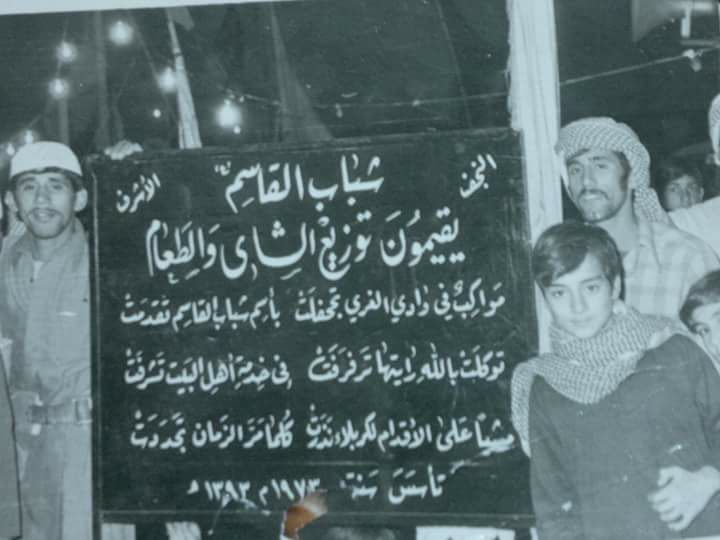 النجف شباب القاسم الأشرف
يقيمون توزيع الشاي والطعام
مواكب في وادي الغري تحفلت باسم شباب القاسم تقدمت
توكلت بالله رايتها ترفرفت في خدمة أهل البيت تشرفت
مشياً على الأقدام لكربلاء نذرت كلما مر الزمان تجددت
تأسس سنة ١٩٧٣ م ١٣٩٣ هـ